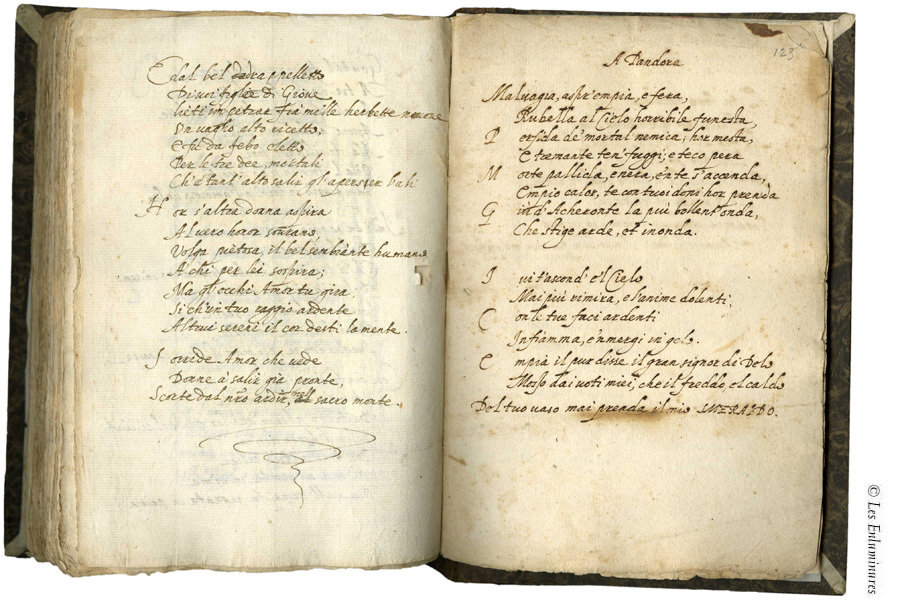 E dal bel
Di voi figlie di Giove
lieti impetrar fra mille herbette
Un vagho alto ricetto,
E fu da febo eletto
Per le tre dee mortali
Ch'e tant'alto salir gl'aperser l'ali
Hor s'altra donna aspira
Al vero honor sourano,
Volga pietosa, il bel sembiante humano
A chi per lei sospira;
Ma gl'occhi Amor tu gira
Si ch'un tuo raggio ardente
Altrui sereni il cor desti la mente.
Sorride Amor che vede
Donne à salir già pronte,
Scorte dal nr̃o ardir, nel sacro monte.
123
A Pandora
Malvagia, aspr'empia, e fera,
Rubella al Cielo horribile funesta,
Perfida de' mortal nemica, hor mesta,
E tremante ten' fuggi; e teco pera
Morte pallida, e nera, e'n te s'accenda,
Empio calor, te con tuoi doni hor prenda
Giù d'Acheronte la più bollent'onda,
Che stige arde, et inonda.
Ivi t'ascond' e'l Cielo
Mai più rimira, e l'anime dolenti
Con le tue faci ardenti
Infiamma, e'nmergi in gelo.
Empia il pur disse il gran signor di Delo
Mosso dai voti miei, che il freddo, el caldo
Del tuo vaso mai prenda il mio SMERALDO.
© Les Enluminures